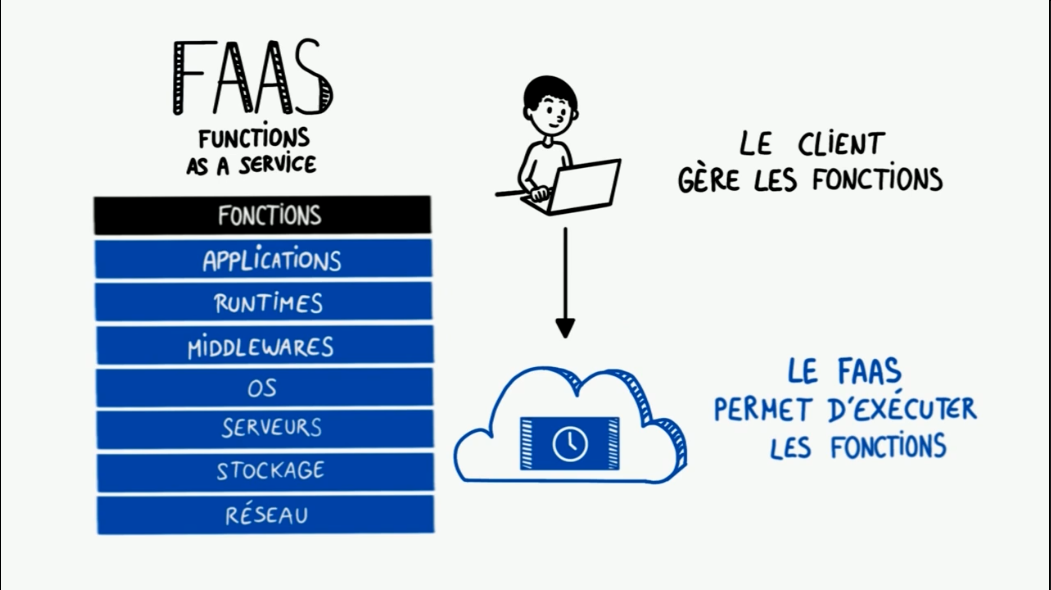 FAAS
FUNCTIONS
AS A SERVICE
FONCTIONS
APPLICATIONS
RUNTIMES
MIDDLEWARES
OS
SERVEURS
STOCKAGE
RÉSEAU
LE CLIENT
GÈRE LES FONCTIONS
LE FAAS
PERMET D'EXÉCUTER
LES FONCTIONS